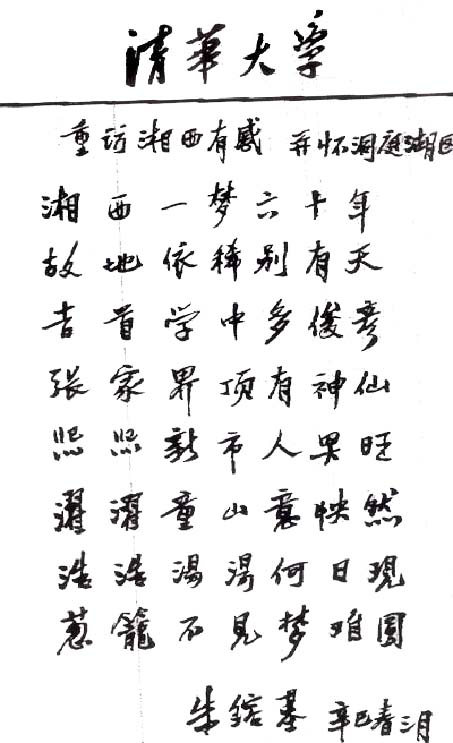 清華大学
重访湘西有感 并怀洞庭湖区
湘西一梦六十年
故地依稀别有天
吉首学中多俊彦
张家界顶有神仙
熙熙新市人兴旺
濯濯童山意怏然
浩浩湯湯何日現
葱籠不見梦难圆
朱鎔基 辛巳春三月